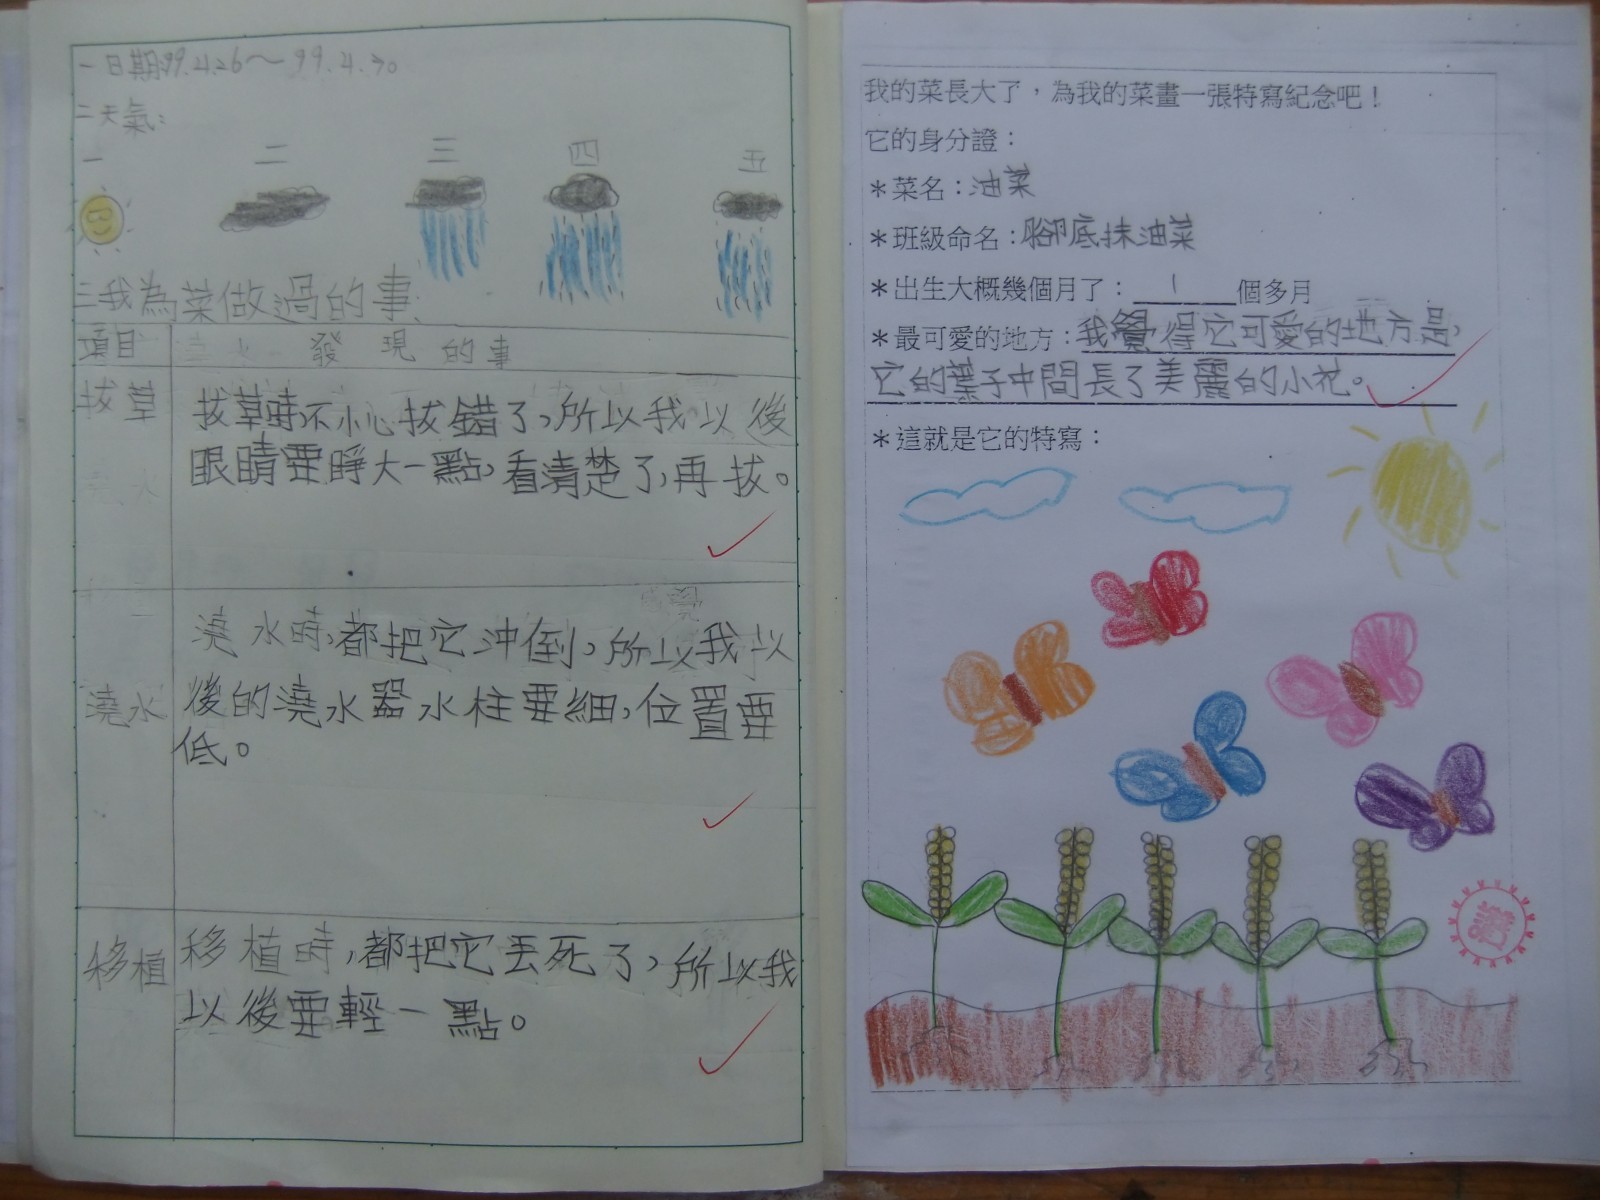 一日期:99.4.26～99.4.30
二天氣:
一 二 三 四 五
三我為菜做過的事:
項目 發現的事
拔草
拔草時不小心拔錯了,所以我以後
眼睛要睜大一點,看清楚了,再拔。
澆水
澆水時,都把它沖倒,所以我以
後的澆水器水柱要細,位置要
低。
移植
移植時,都把它丟死了,所以我
以後要輕一點。
我的菜長大了，為我的菜畫一張特寫紀念吧！
它的身分證：
＊菜名：油菜
＊班級命名：腳底抹油菜
＊出生大概幾個月了：1個多月
＊最可愛的地方：我覺得它可愛的地方是,
它的葉子中間長了美麗的小花。
＊這就是它的特寫：